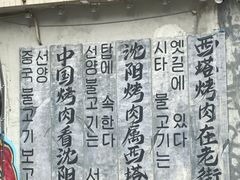 西塔烤肉在老街
시타 불고기는
옛길에 있다
沈阳烤肉属西塔
선양불고기는 서
탑에 속한다
中国烤肉看沈阳
중국 불고기 보고
선양